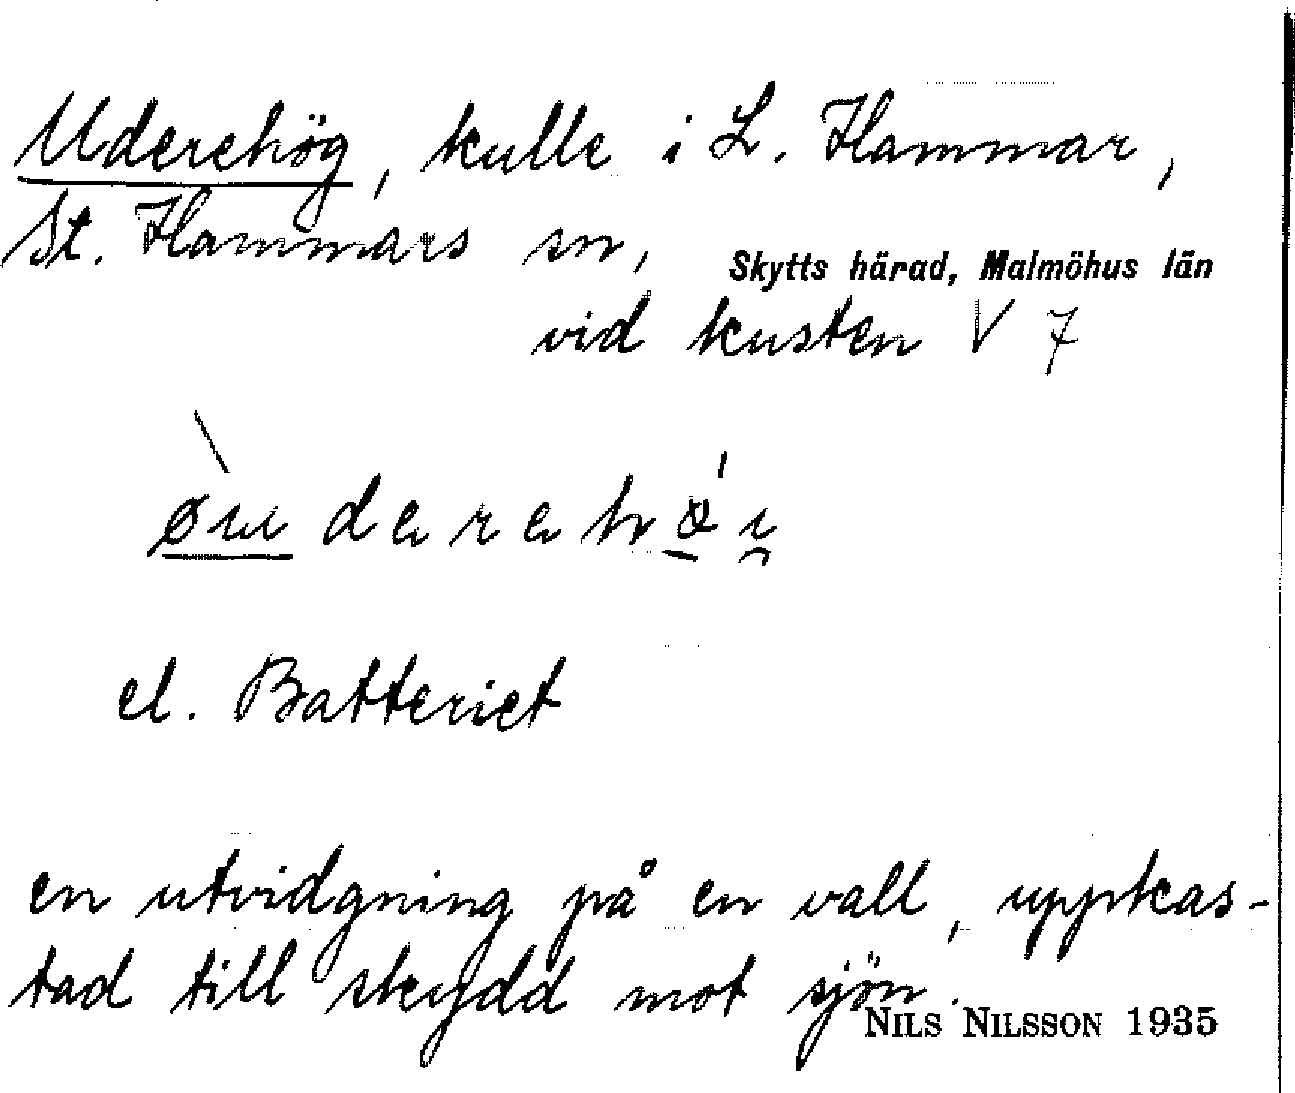 Uderehög, kulle i L. Hammar,
St. Hammars sn,
Skytts härad, Malmöhus län
vid kusten V 7
el. Batteriet
en utvidgning på en vall, uppkas-
tad till skydd mot sjön.
NILS NILSSON 1935